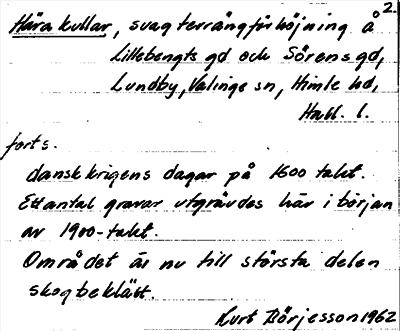 2.
Hära kullar, svag terrängförhöjning å
Lillebengts gd och Sörens gd,
Lundby, Valinge sn, Himle hd,
Hall. l.
forts.
danskkrigens dagar på 1600 talet.
Ett antal gravar utgrävdes här i början
av 1900-talet.
Området är nu till största delen
skogbeklätt.
Kurt Börjesson 1962